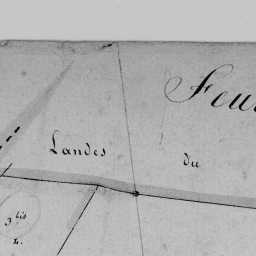 Feu
Landes du
3 bis